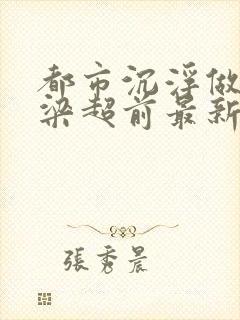 都市沉浮做
梁超前最新
張秀晨